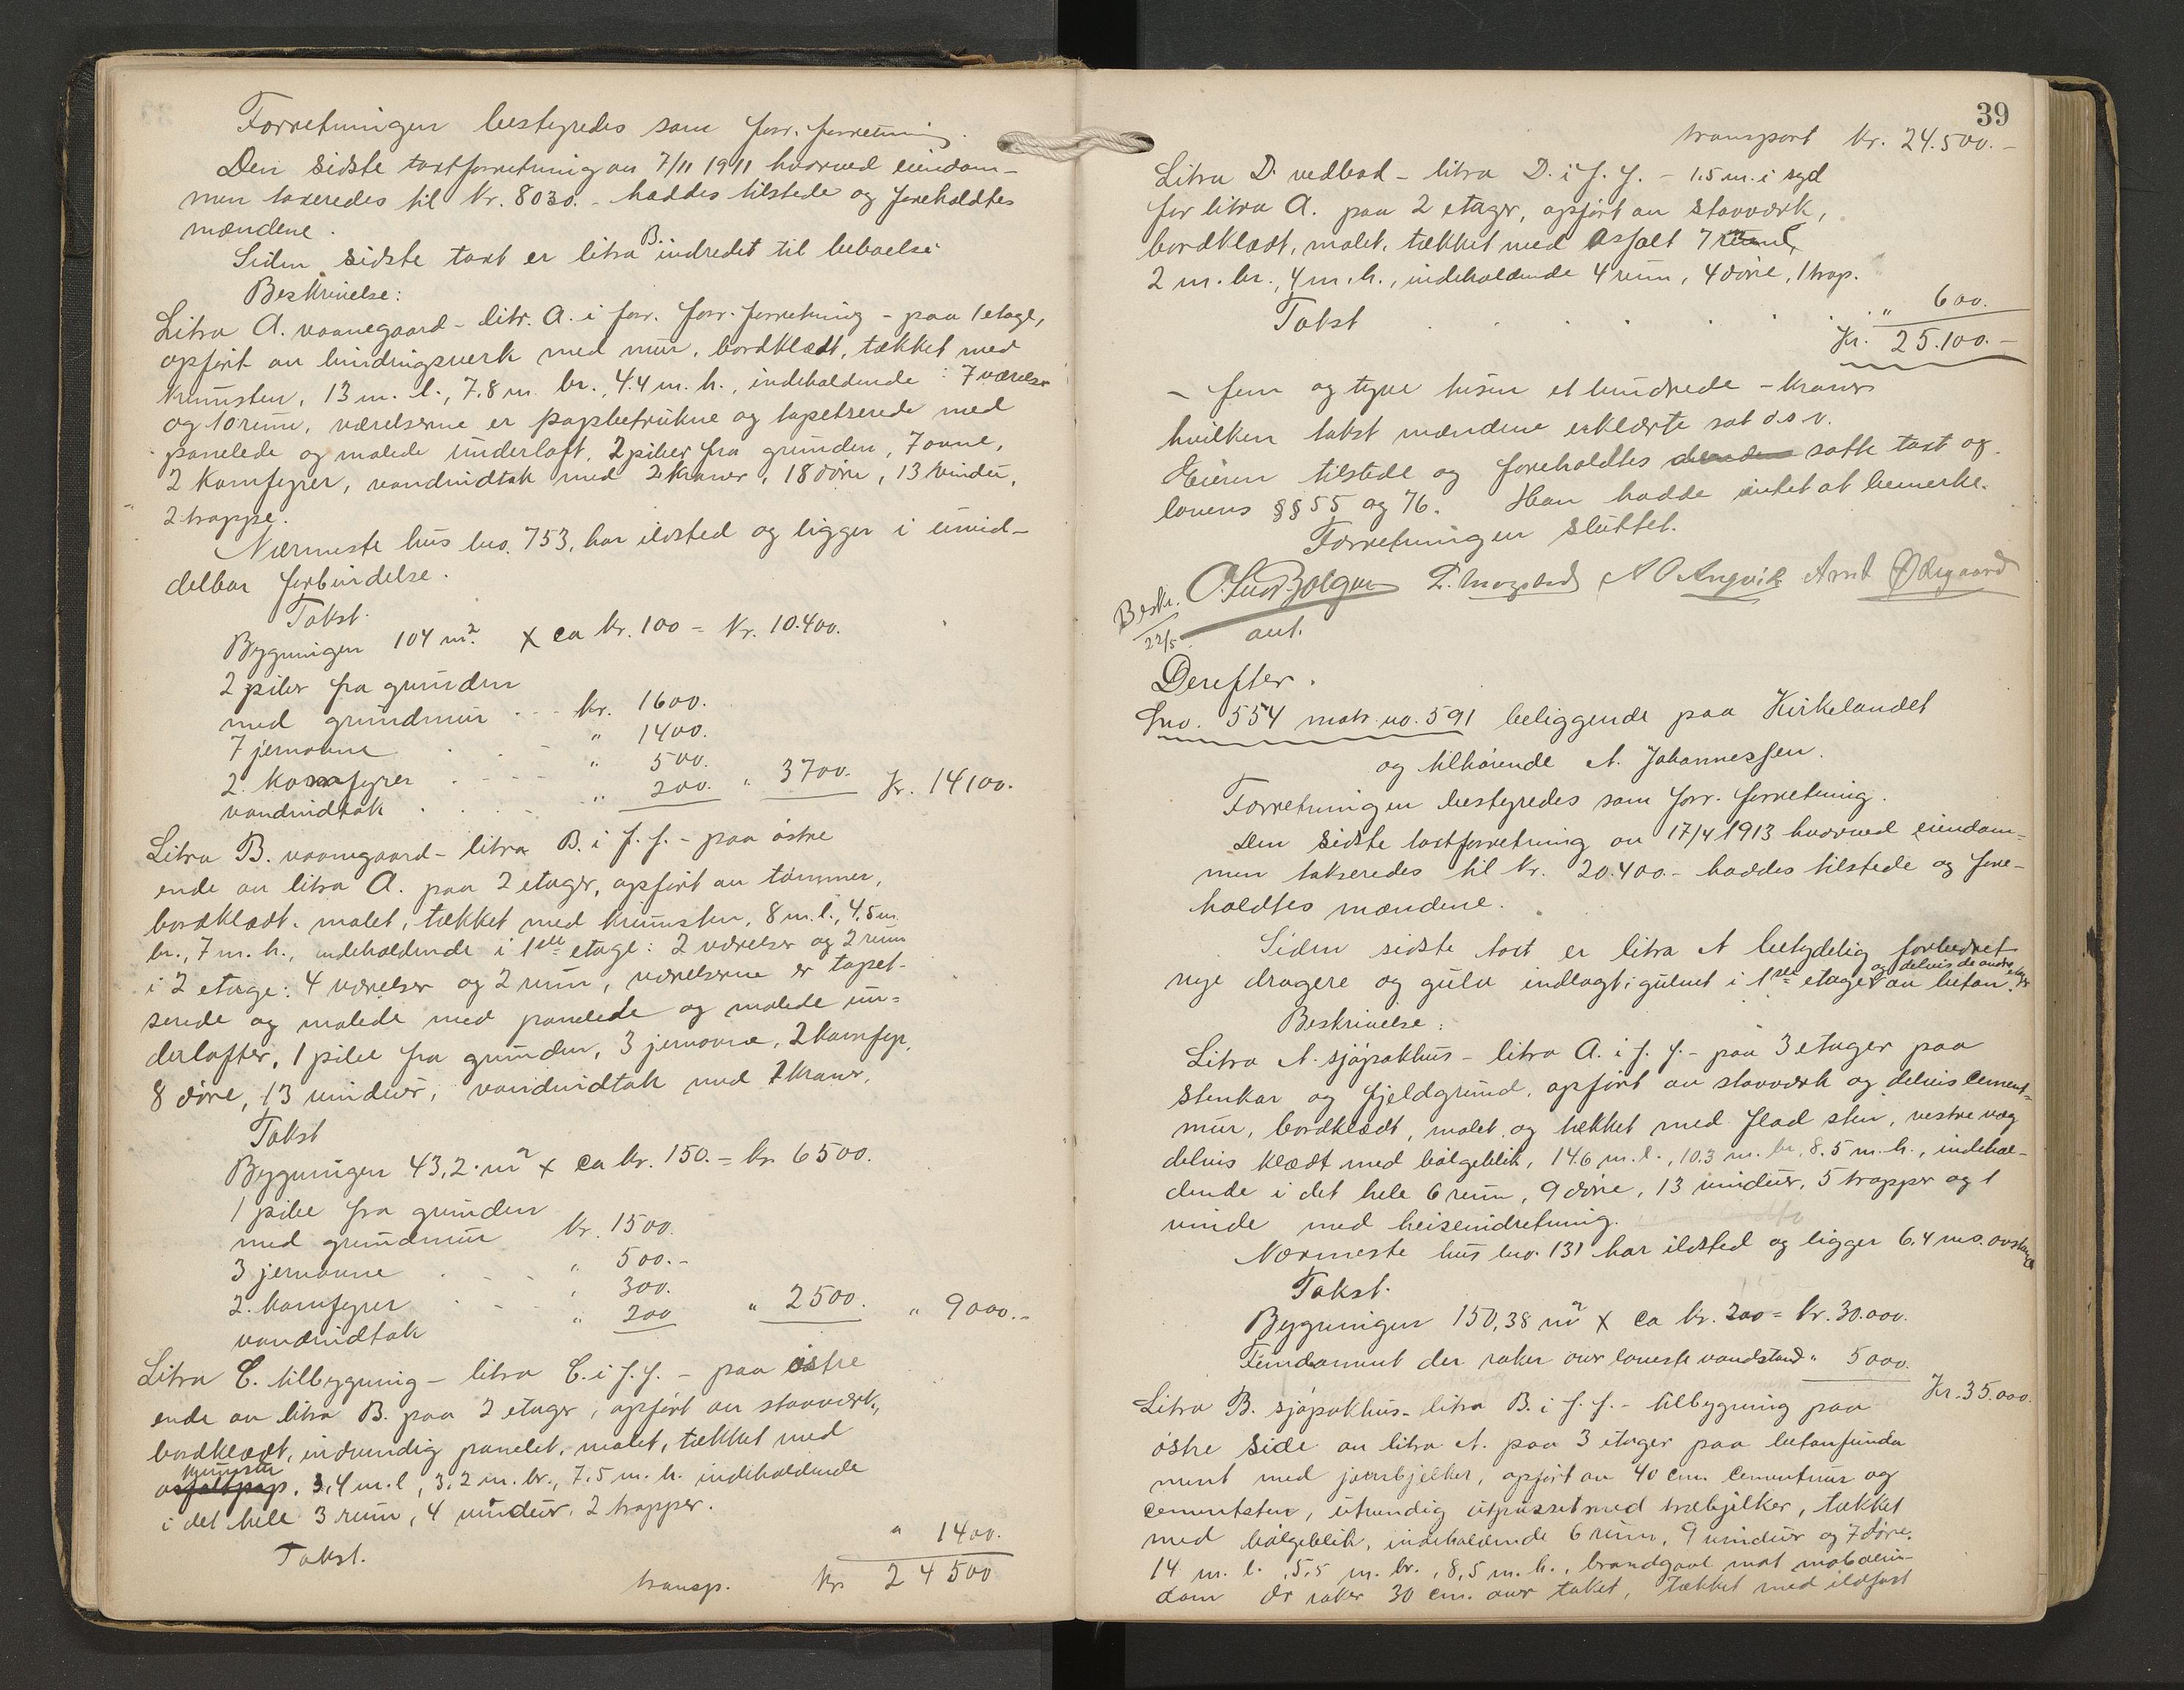 Forretningen bestyredes som forr. forretning.
Den sidste taxtforretning av 7/11 1911 hvorved eiendom-
men taxeredes til kr. 8030.- haddes tilstede og foreholdtes
mændene.
Siden sidste taxt er litra B. indredet til beboelse
Beskrivelse:
Litra A. vaanegaard - litr. A. i forr. forr. forretning - paa 1 etage,
opført av bindingsverk med mur, bordklædt, tækket med
krumsten, 13 m. l., 7.8 m. br. 4.4 m. h., indeholdende: 7 værelser
og 10 rum, værelserne er papbetrukne og tapetserede med
panelede og malede underloft, 2 piber fra grunden, 7 ovne,
2 komfyrer, vandindtak med 2 kraner, 18 døre, 13 vinduer,
2 trappe.
Nærmeste hus bno. 753, har ildsted og ligger i umid-
delbar forbindelse.
Takst.
Bygningen 104 m² x ca kr. 100 = kr. 10.400.
2 piber fra grunden
med grundmur - - kr. 1600.
7 jernovne " 1400.
2. komfyrer " 500.
vandindtak " 200. " 3700. Kr. 14100.
Litra B. vaanegaard - litra B. i f. f. - paa østre
ende av litra A. paa 2 etager, opført av tømmer,
bordklædt, malet, tækket med krumsten, 8 m. l., 4.5 m.
br., 7 m. h., indeholdende i 1ste etage: 2 værelser og 2 rum
i 2 etage: 4 værelser og 2 rum, værelserne er tapet-
serede og malede med panelede og malede un=
derlofter, 1 pibe fra grunden, 3 jernovne, 2 komfyr,
8 døre, 13 vinduer, vandindtak med 2 kraner.
Takst
Bygningen 43,2 m² x ca kr. 150. = kr. 6500.
1 pibe fra grunden
med grundmur kr. 1500.
3 jernovne " 500.-
2. komfyrer " 300.
vandindtak " 200 " 2500. " 9000.-
Litra C. tilbygning - litra C. i f. f. - paa østre
ende av litra B. paa 2 etager, opført av stavværk,
bordklædt, indvendig panelet, malet, tækket med
krumsten
asfaltpap, 3,4 m. l, 3,2 m. br., 7.5 m. h. indeholdende
i det hele 3 rum, 4 vinduer, 2 trapper.
Takst. " 1400.
transp. Kr 24500
39
transport kr. 24.500.-
Litra D. vedbod - litra D. i f. f. - 1.5 m. i syd
for litra A. paa 2 etager, opført av stavværk,
bordklædt, malet, tækket med asfalt 7 m. l,
2 m. br., 4 m. h., indeholdende 4 rum, 4 døre, 1 trap.
Takst " 600.
Kr. 25.100.-
- fem og tyve tusen et hundrede - kroner
hvilken takst mændene erklærte sat o.s.v.
Eieren tilstede og foreholdtes satte taxt og
lovens §§ 55 og 76. Han hadde intet at bemerke.
Forretningen sluttet.
Beskr. 22/5. aut. N O Angvik Arnt Ødegaard
Derefter.
Lno. 554 matr. no. 591 beliggende paa Kirkelandet
og tilhørende A. Johannessen.
Forretningen bestyredes som forr. forretning.
Den sidste taxtforretning av 17/4 1913 hvorved eiendom=
men takseredes til kr. 20.400.- haddes tilstede og fore-
holdtes mændene.
Siden sidste taxt er litra A betydelig forbedret
og delvis de andre etager
nye dragere og gulv indlagt, gulvet i 1ste etage av beton.
Beskrivelse:
Litra A. sjøpakhus - litra A. i f. f. - paa 3 etager paa
stenkar og fjeldgrund, opført av stavværk og delvis cement-
mur, bordklædt, malet og tækket med flad sten, vestre væg
delvis klædt med bølgeblik, 14.6 m. l., 10.3 m. br., 8.5 m. h., indehol-
dende i det hele 6 rum, 9 døre, 13 vinduer, 5 trapper og 1
vinde med heiseindretning.
Nærmeste hus bno. 131 har ildsted og ligger 6,4 m's avstand
Takst.
Bygningen 150,38 m² x ca kr. 200 = kr. 30.000.
Fundament der raker over laveste vandstand " 5000. Kr. 35.000.
Litra B. sjøpakhus - litra B. i f. f. - tilbygning paa
østre side av litra A. paa 3 etager paa betonfunda
ment med jernbjelker, opført av 40 cm. cementmur og
cementsten, utvendig utpusset med træbjelker, tækket
med bølgeblik, indeholdende 6 rum, 9 vinduer og 7 døre.
14 m. l. 5,5 m. br., 8,5 m. h., brandgavl mot naboeien-
dom der raker 30 cm. over taket, tækket med ildfast